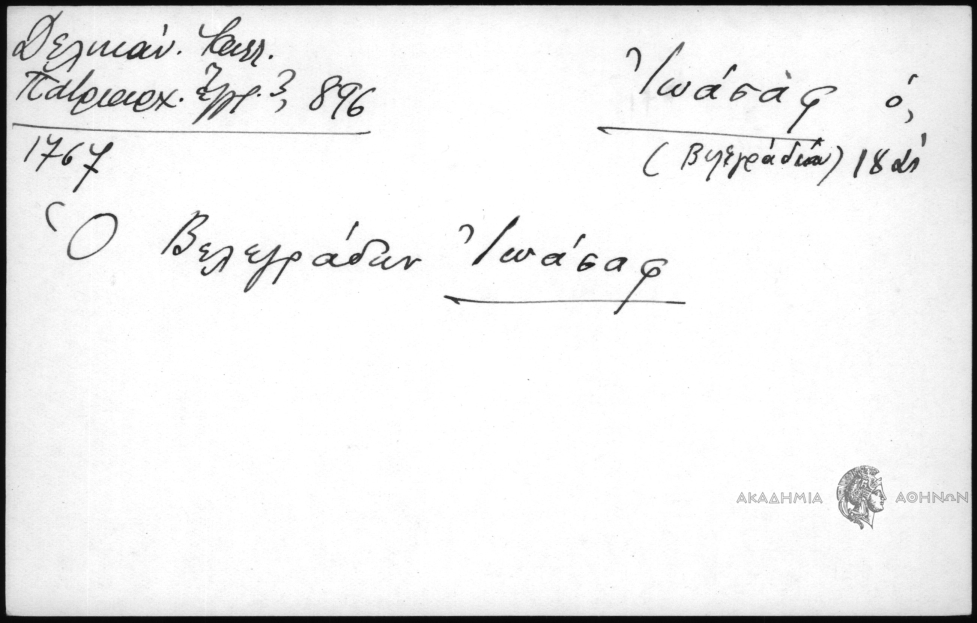 Δελικάν. Καλλ.
Πατριαρχ. Ἔγγρ. 3, 896
1767
Ἰωάσαφ ὁ,
(Βελεγράδων) 18 αἰ
Ὁ Βελεγράδων Ἰωάσαφ
ΑΚΑΔΗΜΙΑ ΑΘΗΝΩΝ